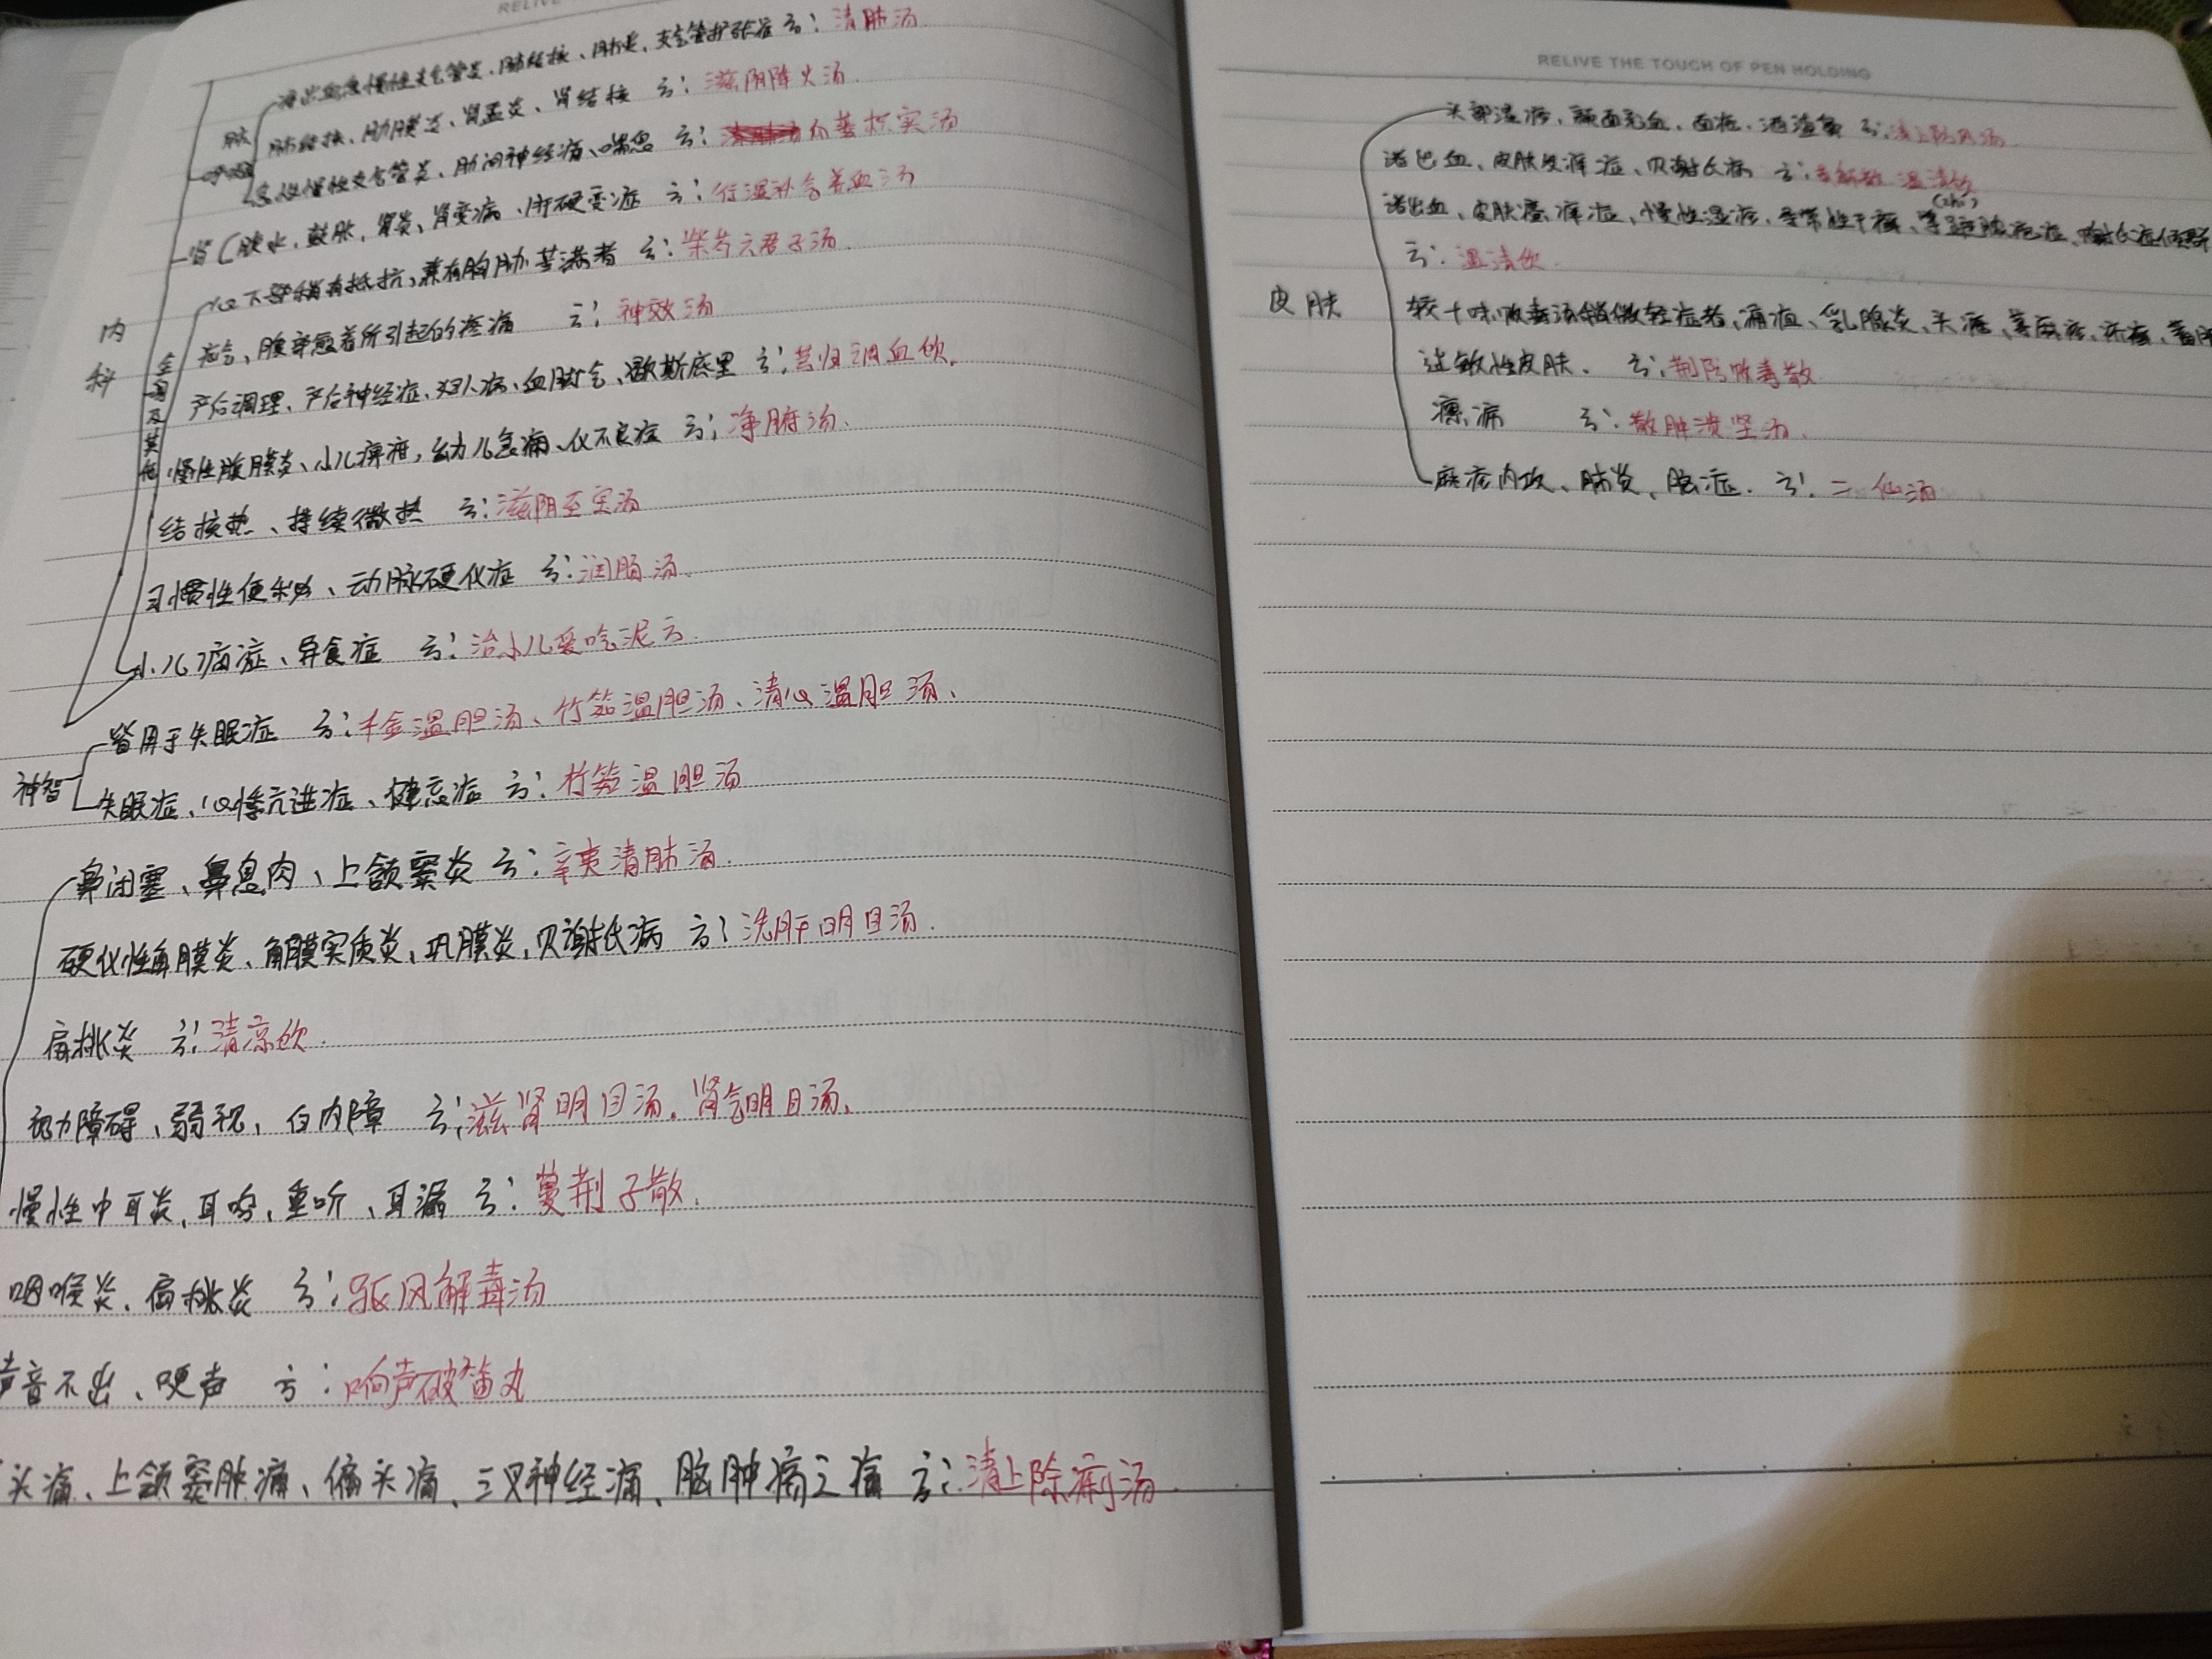 RELIVE
慢性支气管炎、肺结核、肺炎、支气管扩张症 方：清肺汤
肺结核、肋膜炎、肾盂炎、肾结核 方：滋阴降火汤.
慢性支气管炎、肋间神经痛、喘息 方： 枳实汤
肾 腹水、鼓胀、肾炎、肾变病、肝硬变症 方：行湿补气养血汤
心下部稍有抵抗,兼有胸胁苦满者 方：柴芍六君子汤.
疝气、腹部 着所引起的疼痛 方：神效汤
内科
全身及其他
产后调理、产后神经症、妇人病、血脚气、歇斯底里 方：芎归调血饮.
慢性腹膜炎、小儿痹疳,幼儿急痛、 不良症 方：净腑汤.
结核热、持续微热 方：滋阴至宝汤
习惯性便秘、动脉硬化症 方：润肠汤.
小儿 症、异食症 方：治小儿爱吃泥方.
皆用于失眠症 方：千金温胆汤、竹茹温胆汤、清心温胆汤、
神智
失眠症、心悸亢进症、健忘症 方：竹茹温胆汤
鼻闭塞、鼻息肉、上颌窦炎 方：辛夷清肺汤.
硬化性角膜炎、角膜实质炎,巩膜炎,贝谢氏病 方：洗肝明目汤.
扁桃炎 方：清凉饮.
视力障碍、弱视、白内障 方：滋肾明目汤.肾气明目汤、
慢性中耳炎,耳鸣,重听、耳漏 方：蔓荆子散.
咽喉炎、扁桃炎 方：驱风解毒汤
声音不出、哽声 方：响声破笛丸
头痛、上颌窦肿痛、偏头痛、三叉神经痛、脑肿病之痛 方：清上除痛汤.
RELIVE THE TOUCH OF PEN HOLDING
头部湿疹,颜面充血、面疱、酒渣鼻 方：清上防风汤.
诸出血、皮肤 痒症、贝谢氏病 方： 温清饮
诸出血、皮肤瘙痒症、慢性湿疹、寻常性干癣、
方：温清饮.
皮肤
较十味败毒汤稍微轻症者、痈疽、乳腺炎、头疮、荨麻疹、疥癣、
过敏性皮肤. 方：荆防败毒散.
瘰疬 方：散肿溃坚汤.
麻疹内攻、肺炎、脑症. 方：二仙汤